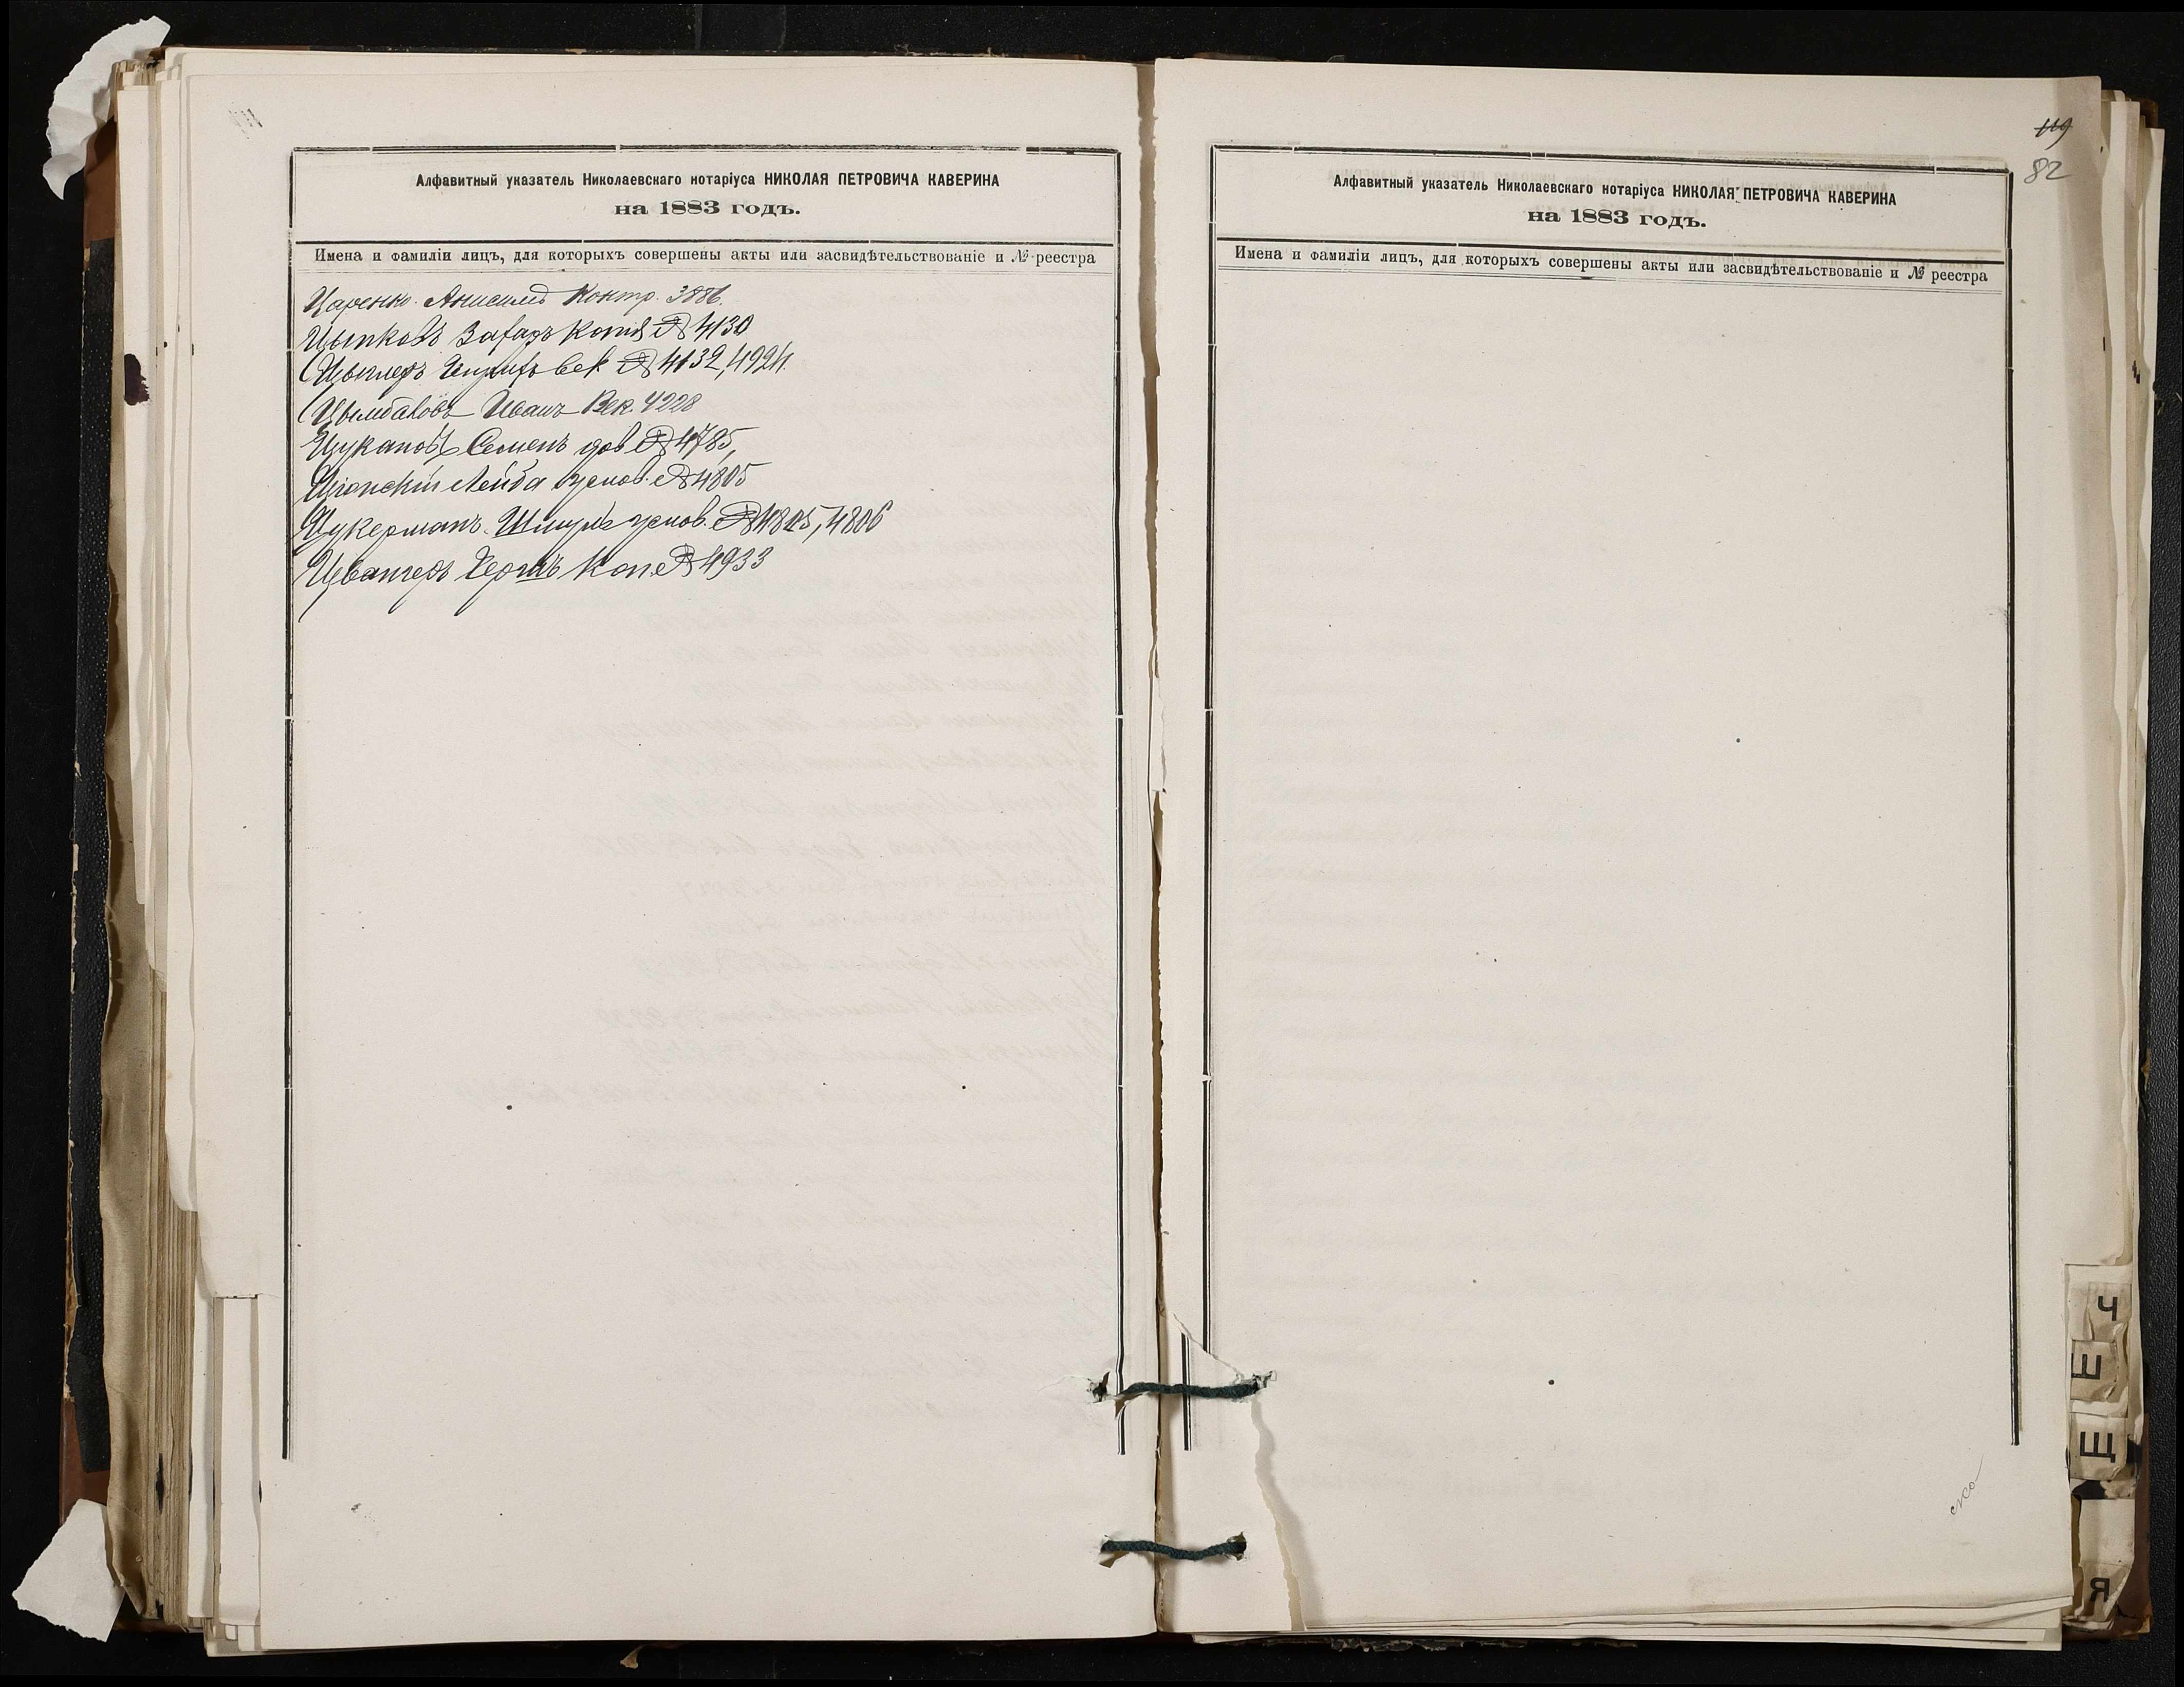 Алфавитный указатель Николаевскаго нотаріуса НИКОЛАЯ ПЕТРОВИЧА КАВЕРИНА
на 1883 годъ.
Имена и фамиліи лицъ, для которыхъ совершены акты или засвидѣтельствованіе и № реестра
Царенко Анисимъ Контр. 3886.
Цыпковъ Захаръ копія № 4130
Цыглеръ век № 4132, 4924.
Цымбаловъ Иванъ Век. 4228
Цукановъ Семенъ дов № 4785,
Ціонскій Лейба услов. № 4805
Цукерманъ Шмуль услов. № 4805, 4806
Цвангеръ Гершъ коп. № 4933
119
82
Алфавитный указатель Николаевскаго нотаріуса НИКОЛАЯ ПЕТРОВИЧА КАВЕРИНА
на 1883 годъ.
Имена и фамиліи лицъ, для которыхъ совершены акты или засвидѣтельствованіе и № реестра
Ч
Ш
Щ
Я